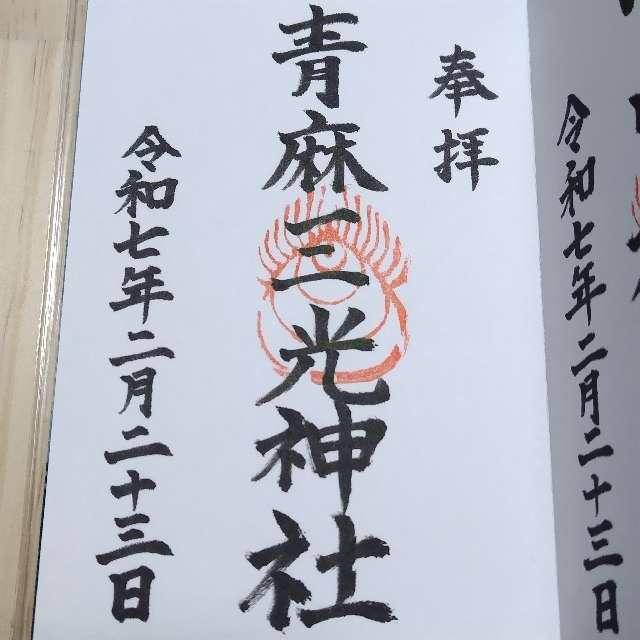 奉拝
青麻三光神社
令和七年二月二十三日
令和七年二月二十三日